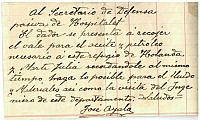 Al Secretario de Defensa
pasiva de Hospitalet
El dador se presenta a recoger
el vale para el aceite y petroleo
necesario a este refugio de Rosanda
y Marti Julia recordandole al mismo
tiempo haga lo posible para el fluido
y Materiales asi como la visita del Inge
niero de este departamento. Saludos
José Ayala